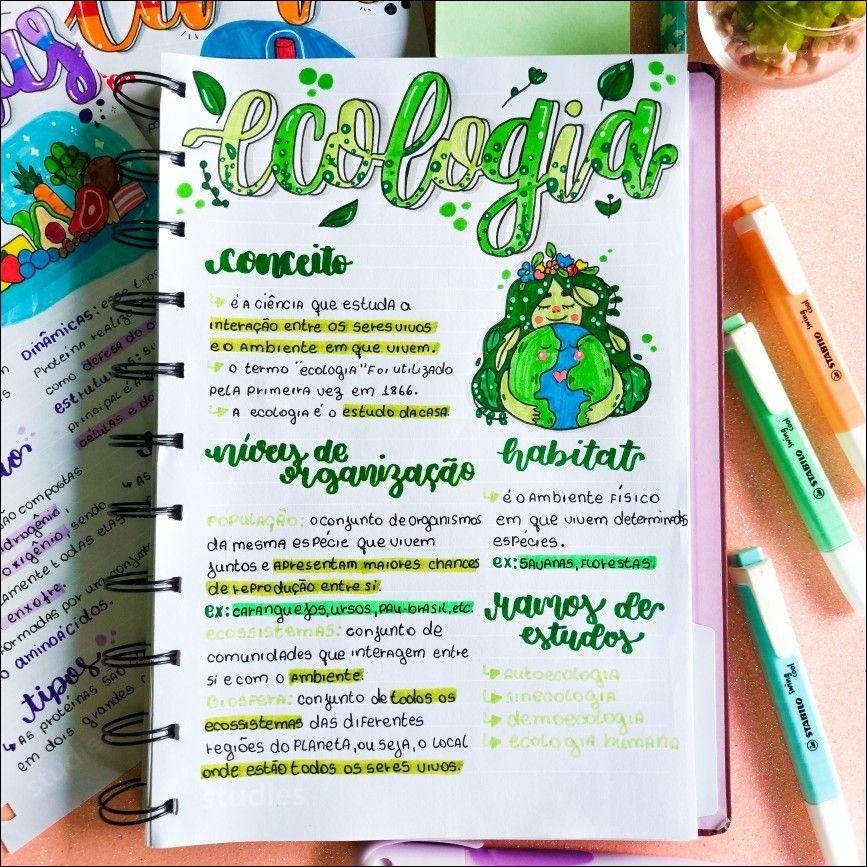 ecologia
conceito
é a ciência que estuda a
interação entre os seres vivos
e o ambiente em que vivem.
o termo "ecologia" foi utilizado
pela primeira vez em 1866.
a ecologia é o estudo da casa.
níveis de
organização
população: o conjunto de organismos
da mesma espécie que vivem
juntos e apresentam maiores chances
de reprodução entre si.
ex: caranguejos, ursos, pau-brasil, etc.
ecossistemas: conjunto de
comunidades que interagem entre
si e com o ambiente.
biosfera: conjunto de todos os
ecossistemas das diferentes
regiões do planeta, ou seja, o local
onde estão todos os seres vivos.
studies
habitat
é o ambiente físico
em que vivem determinads
espécies.
ex: savanas, florestas.
ramos de
estudos
autoecologia
sinecologia
demoecologia
ecologia humana
Dinâmicas: esse tipo
proteína realiza
como defesa do o
estruturais:
principal é a
células e do
são compostas
hidrogênio,
oxigênio, sendo
amente todas elas
enxofre.
formadas por um conjunt
aminoácidos.
tipos
as proteínas são
em dois grandes
studies
STABILO
swing
cool
STABILO
swing
cool
STABILO
swing
cool